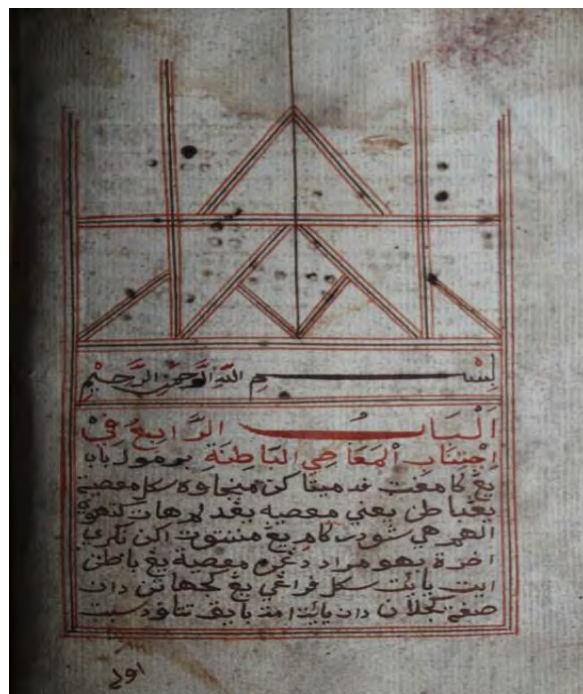 بِسْمِ اللّٰهِ الرَّحْمٰنِ الرَّحِيْمِ
اَلْبَابُ الرَّابِعُ فِيْ
اِجْتِنَابِ الْمَعَاصِي الْبَاطِنَةِ برمول باب
يڠ كامفت فد ميتاكن منجاوه سكل معصية
يڠ باطن يعني معصية يڠد
الهم هي سودراكام يڠ منونتت اكن نكري
اخرة بهو مراد دڠن معصية يڠ باطن
ايت يائيت سكل فراڠي يڠ كجهاتن دان
صفة كجلان دان يائيت امت بايق تتاف دست
اوله